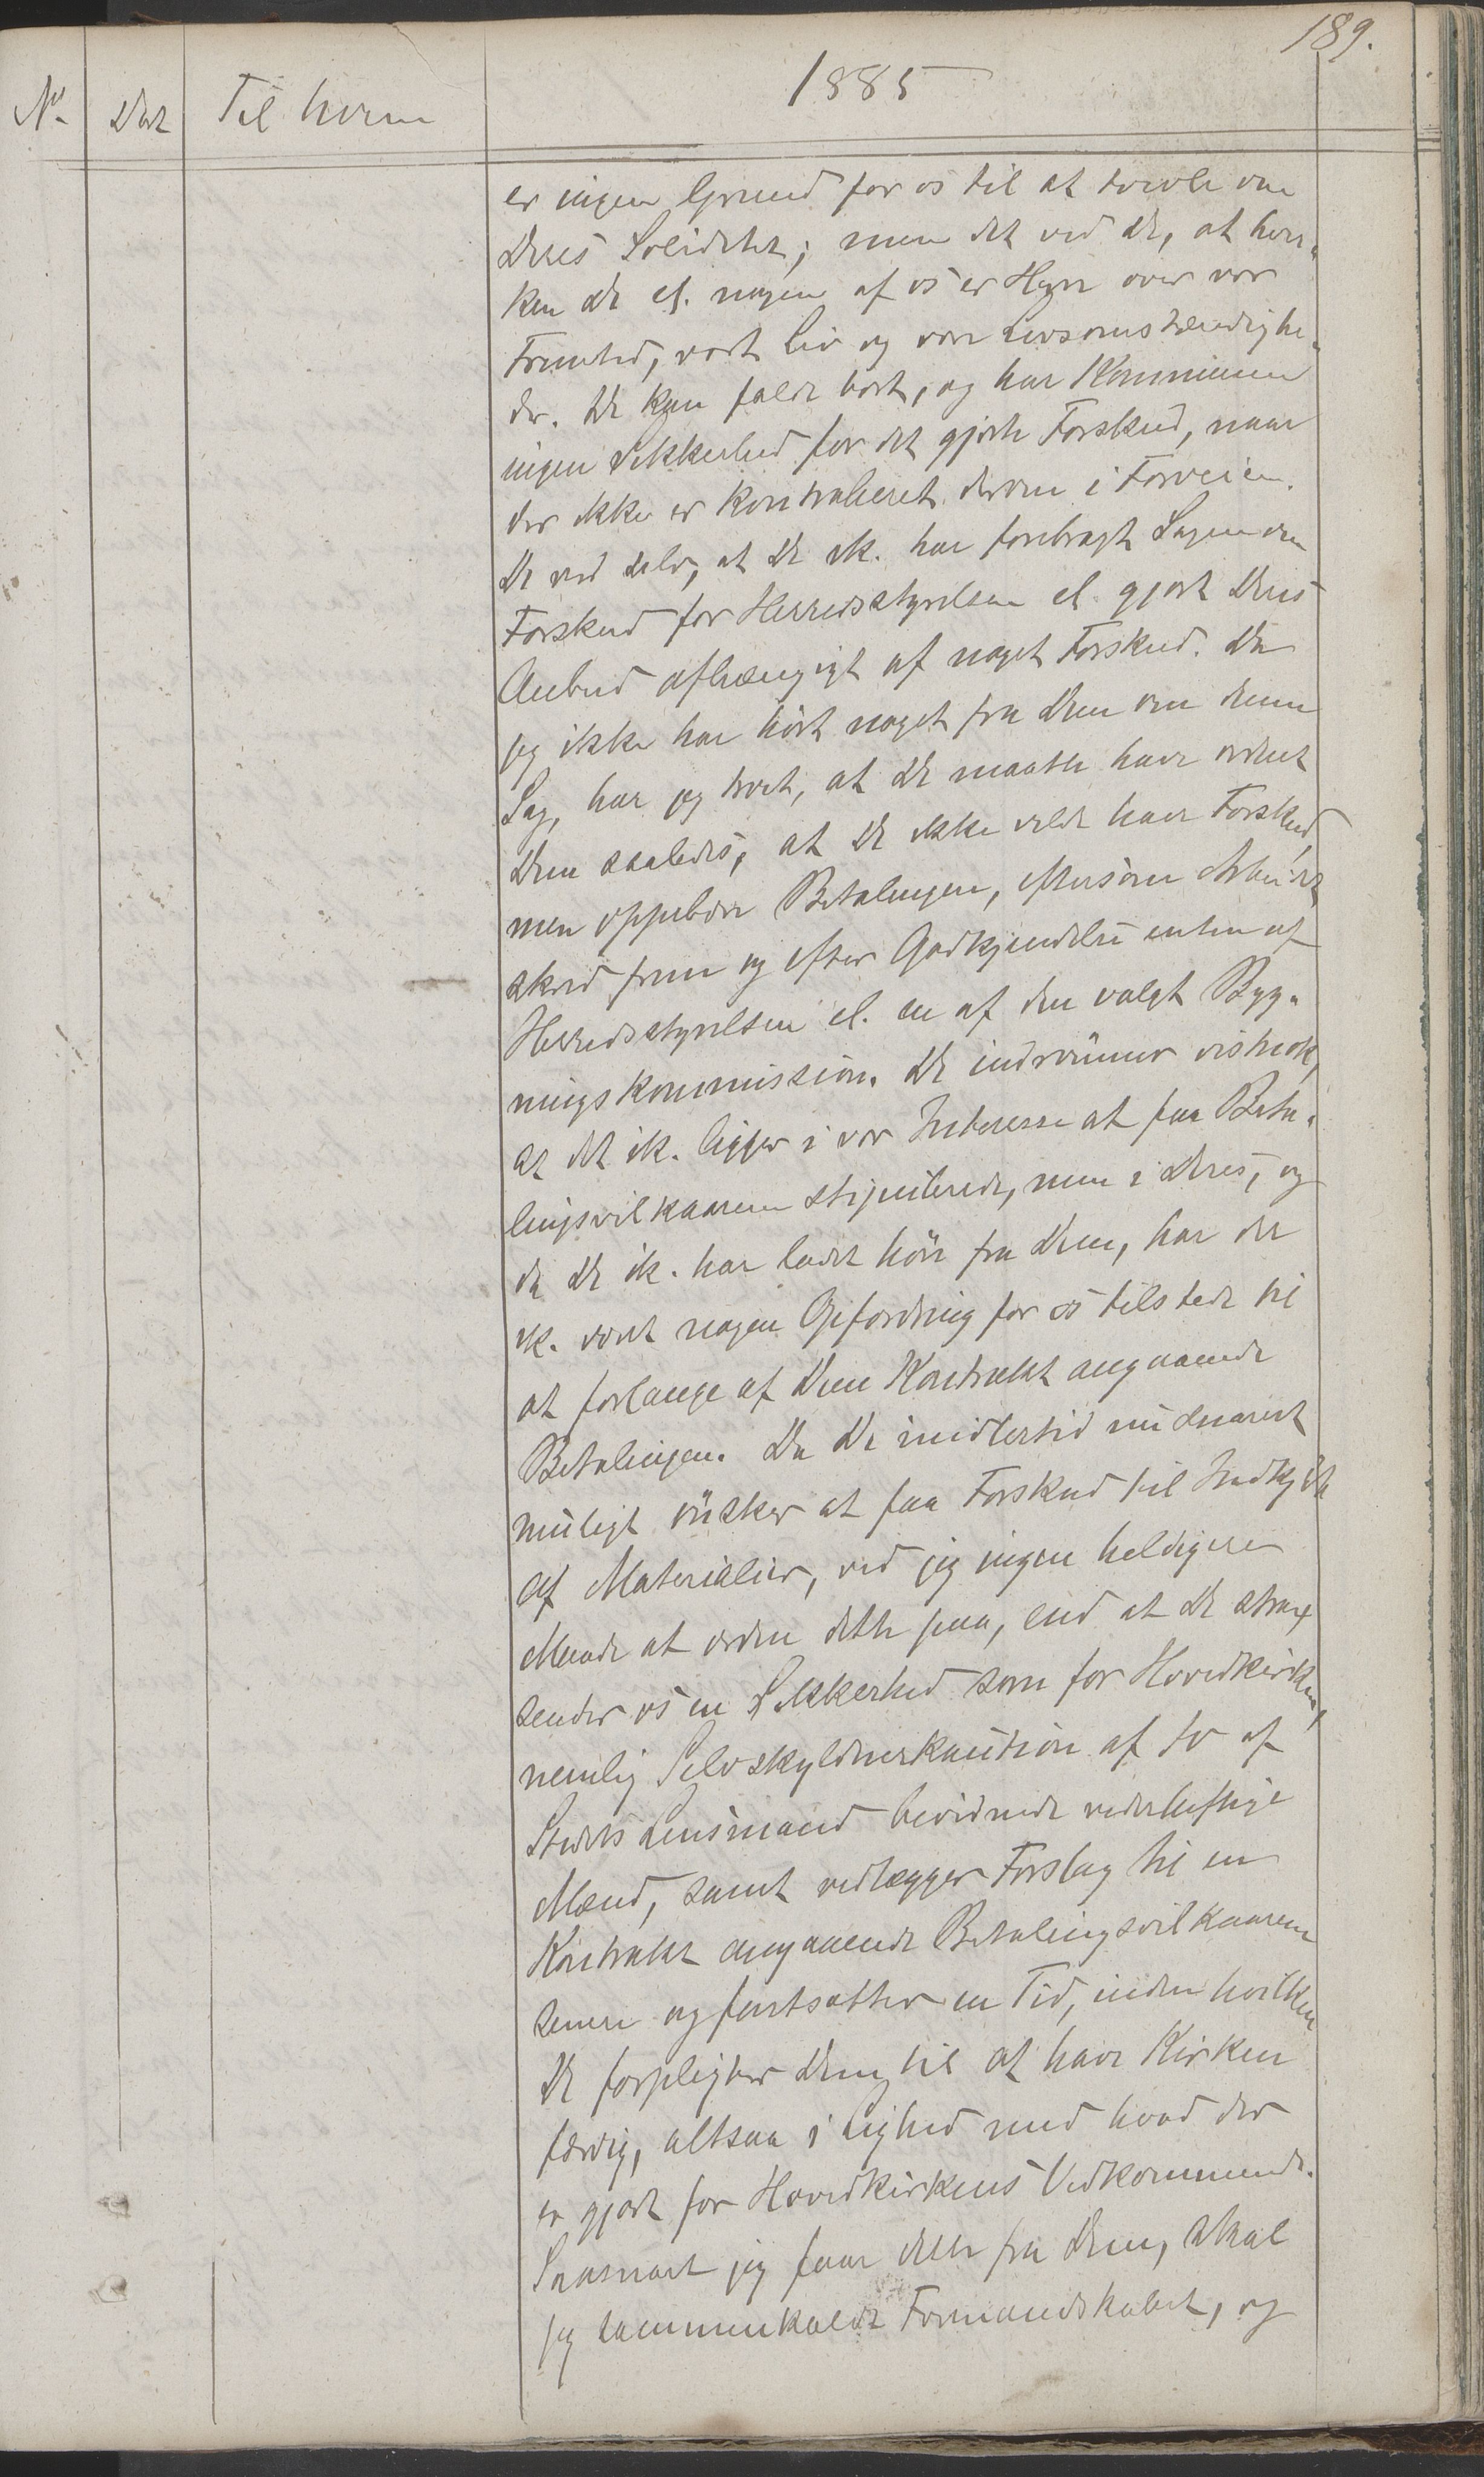 189.
1885
No Dat Til hvem
er ingen Grund for os til at tvivle om
Deres Soliditet; men det ved De, at hver-
ken De el. nogen af os er Herre over vor
Fremtid, vort Liv og vore Livsomstændighe-
der. De kan falde bort, og har Kommunen
ingen Sikkerhed for det gjorte Forskud, naar
der ikke er kontraheret derom i Forveien.
De ved selv, at De ik. har forebragt Sagen om
Forskud for Herredsstyrelsen el. gjort Deres
Anbud afhængigt af noget Forskud. Da
jeg ikke har hørt noget fra Dem om denne
Sag, har jeg troet, at De maatte have ordnet
Dem saaledes, at De ikke vilde have Forskud,
men oppebære Betalingen, eftersom Arbeidet
skred frem og efter Godkjendelse enten af
Herredsstyrelsen el. en af den valgt Byg-
ningskommission. De indrømmer vistnok,
at det ik. ligger i vor Interesse at faa Beta-
lingsvilkaarene stipulerede, men i Deres, og
da De ik. har ladet høre fra Dem, har der
ik. været nogen Opfordring for os tilstede til
at forlange af Dem Kontrakt angaaende
Betalingen. Da De imidlertid nu snarest
muligt ønsker at faa Forskud til Indkjøb
af Materialier, ved jeg ingen heldigere
Maade at ordne dette paa, end at De strax
sender os en Sikkerhed som for Hovedkirken,
nemlig Selvskyldnerkaution af to af
Stedets Lensmand bevidnede vederheftige
Mænd, samt vedlægger Forslag til en
Kontrakt angaaende Betalingsvilkaarene
senere og fastsætter en Tid, inden hvilken
De forpligter Dem til at have Kirken
færdig, altsaa i Lighed med hvad der
er gjort for Hovedkirkens Vedkommende.
Saasnart jeg faar dette fra Dem, skal
jeg sammenkalde Formandskabet, og